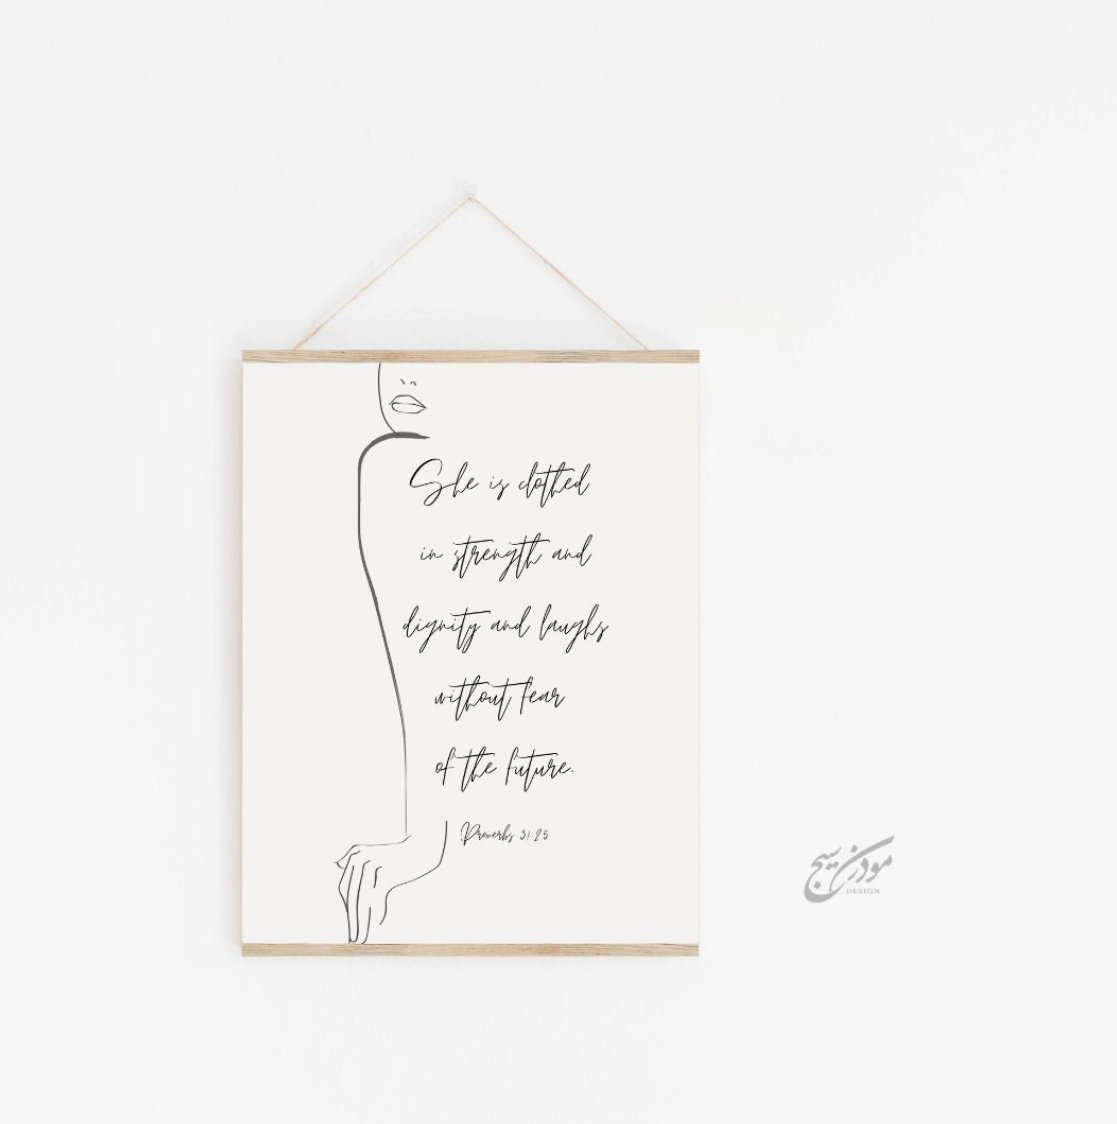 She is clothed
in strength and
dignity and laughs
without fear
of the future.
Proverbs 31:25
مودرن سيج
DESIGN